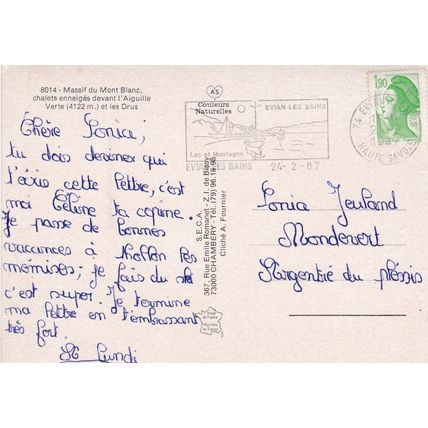 8014 - Massif du Mont Blanc,
chalets enneigés devant l'Aiguille
Verte (4122 m.) et les Drus
Chère Sonia,
tu dois deviner qui
t'écris cette lettre, c'est
moi Céline ta copine.
Je passe de bonnes
vacances à Thollon les
mémises; je fais du ski
c'est super. Je termine
ma lettre en t'embrassant
très fort.
Lundi
AS
Couleurs
Naturelles
EVIAN LES BAINS
Lac et Montagne
EVIAN LES BAINS 24-2-87
1,90
HAUTE SAVOIE
S.E.C.A.
367, Rue Emile Romanet - Z.I. de Bissy
73000 CHAMBERY - Tél. (79) 96.16.98
Cliché A. Fournier
Sonia Jeuland
Mondevert
Argentré du plessis